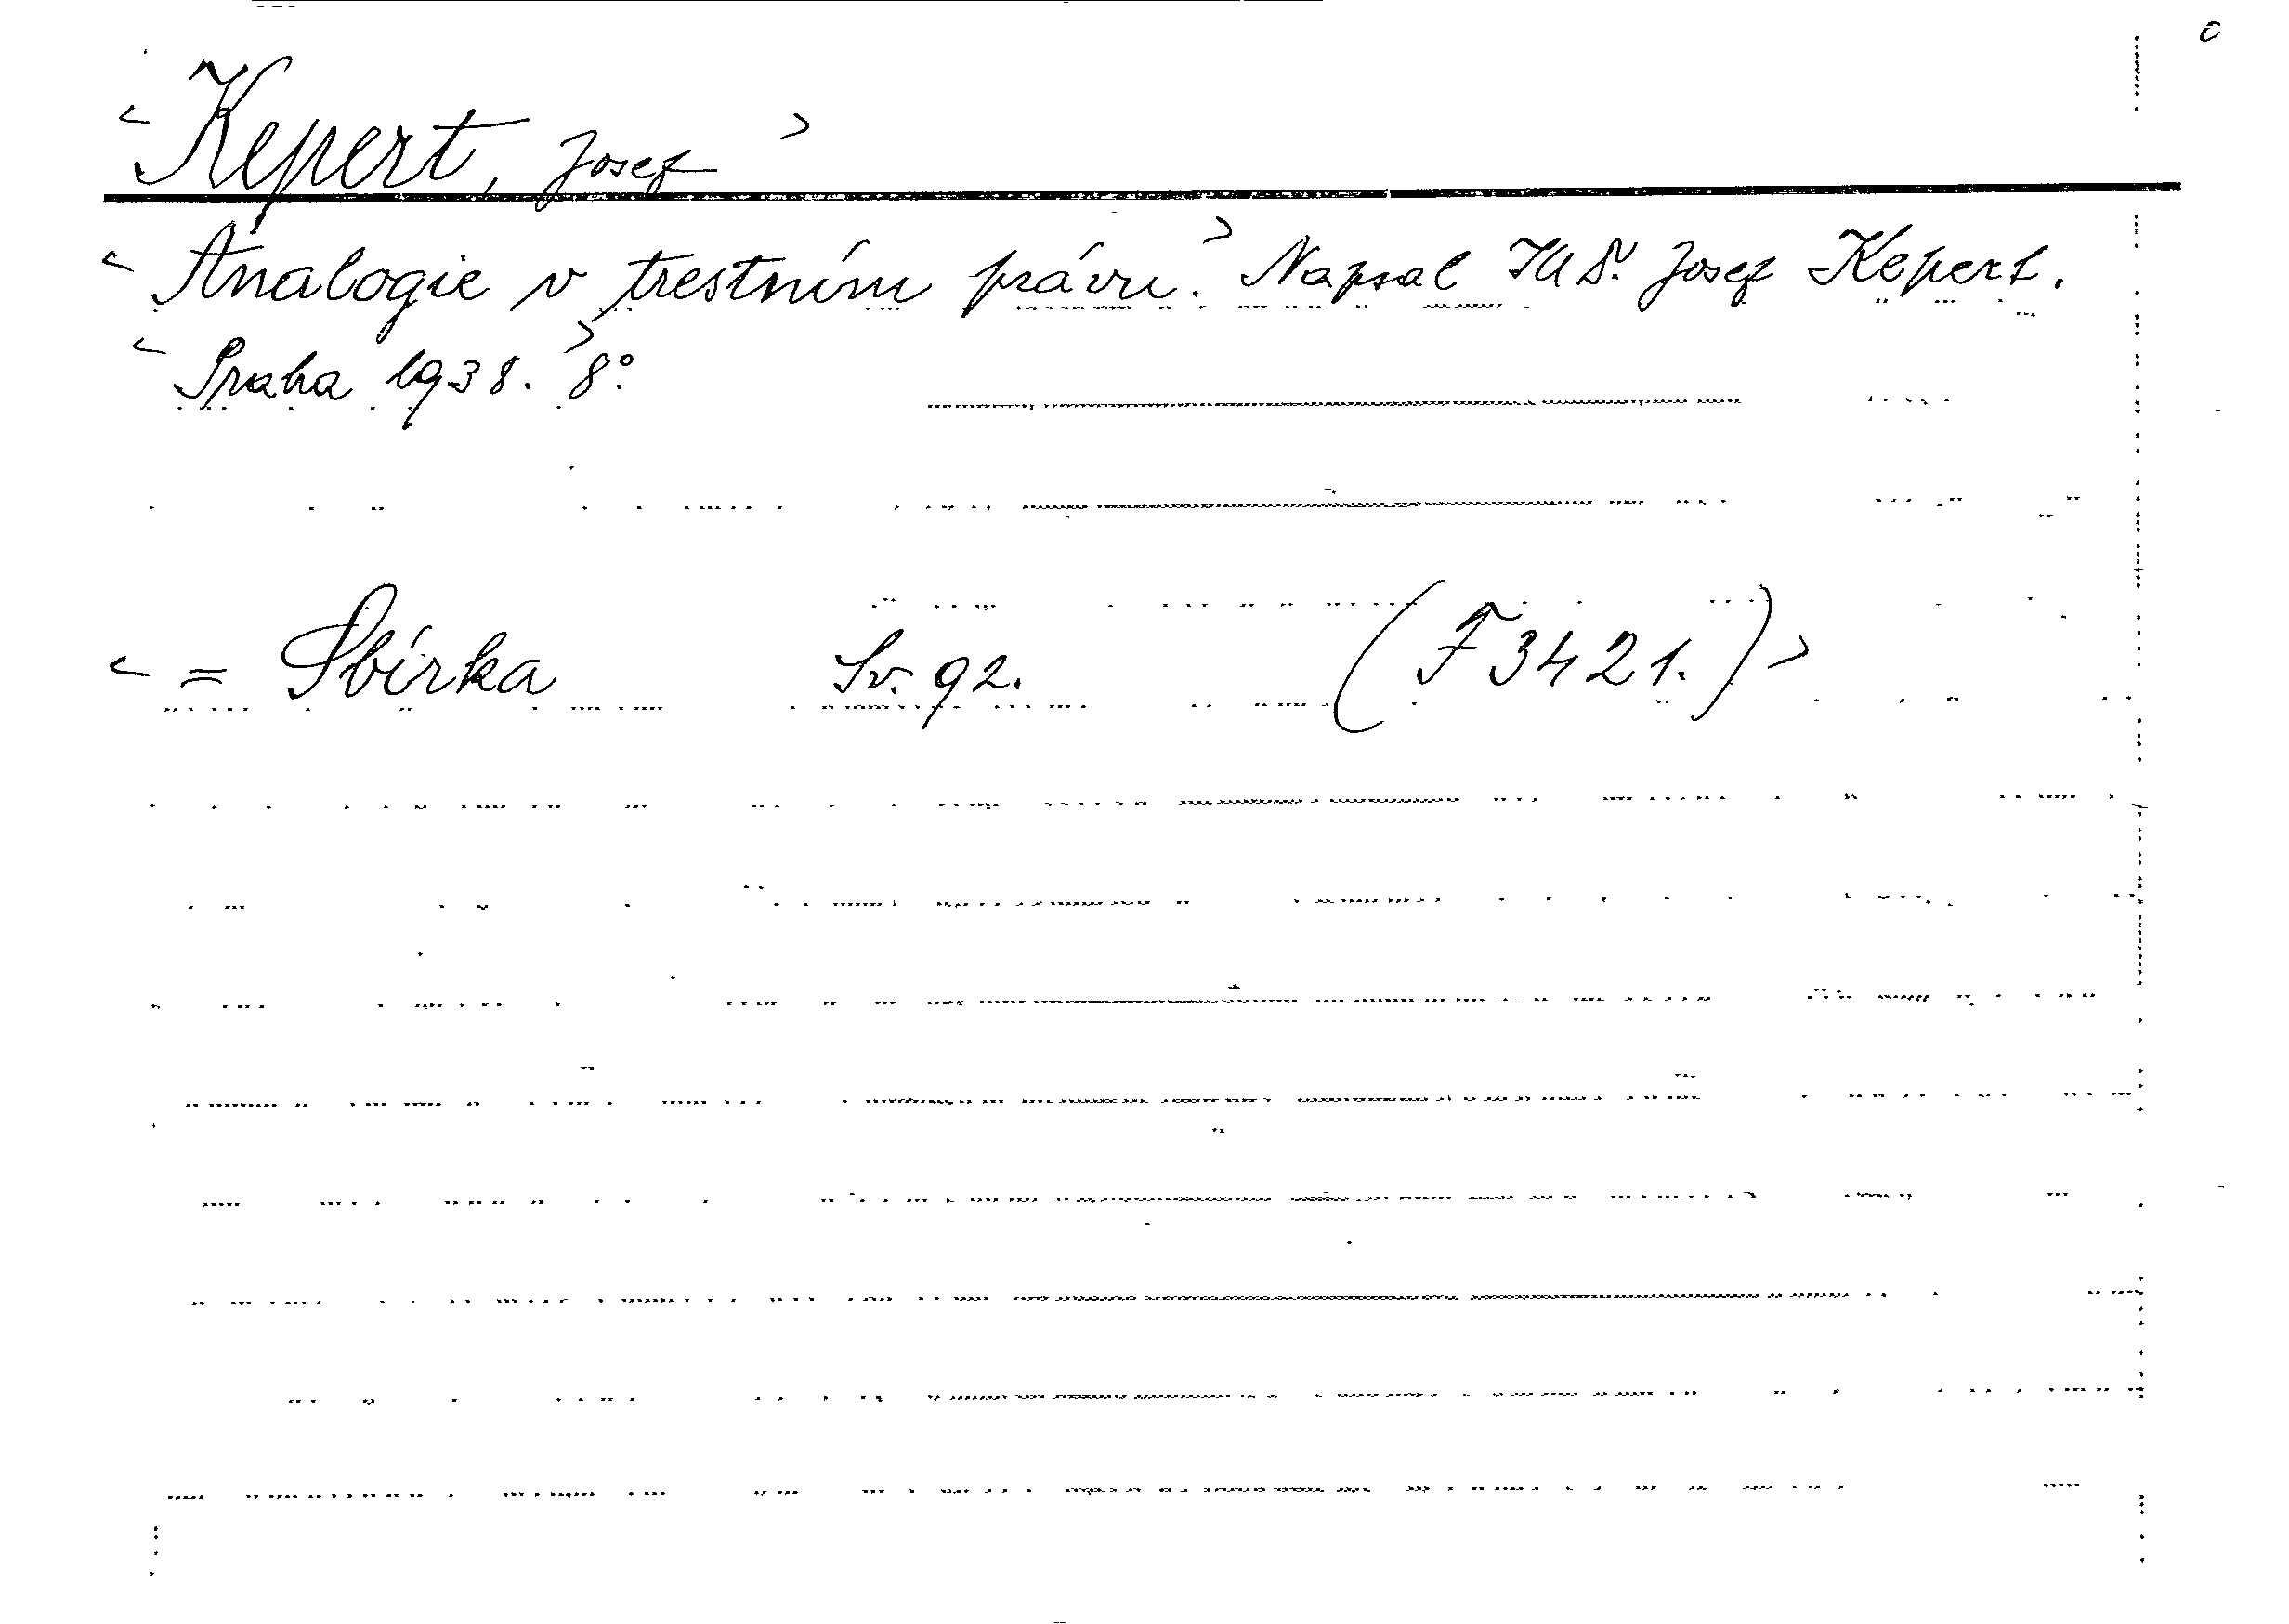 < Kepert, Josef >
< Analogie v trestním právu.> Napsal JUDr. Josef Kepert.
< Praha 1938.> 8°.
< = Sbírka Sv. 92. (F 3421.) >